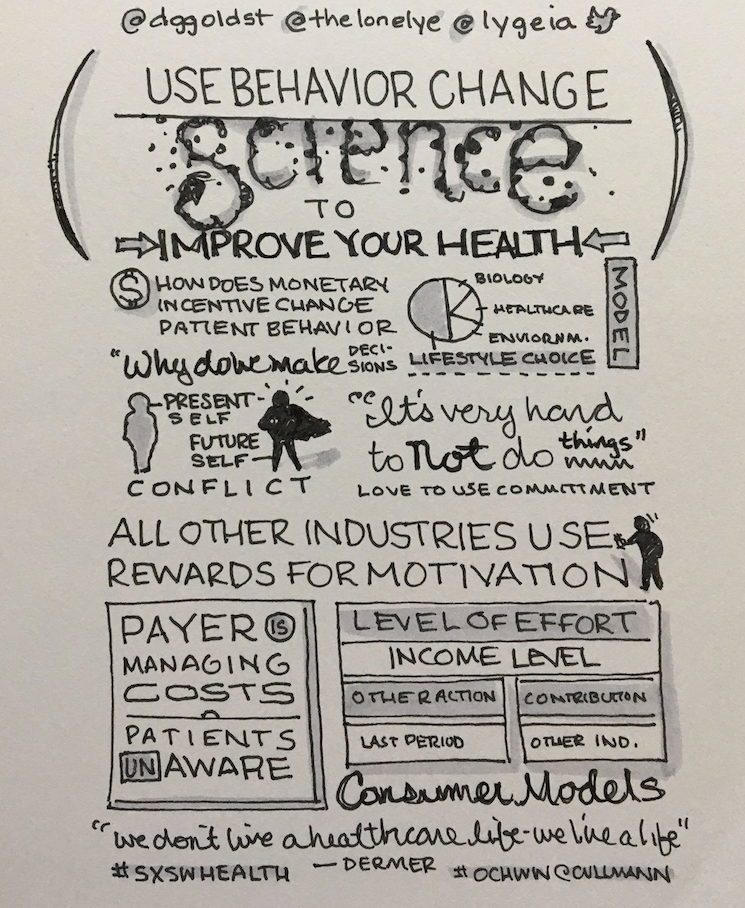 @dggoldst @thelonelye @lygeia
USE BEHAVIOR CHANGE
SCIENCE
TO
IMPROVE YOUR HEALTH
$ HOW DOES MONETARY
INCENTIVE CHANGE
PATIENT BEHAVIOR
BIOLOGY
HEALTHCARE
ENVIORNM.
LIFESTYLE CHOICE
MODEL
"Why do we make DECI-
SIONS
PRESENT-
SELF
FUTURE
SELF
CONFLICT
"It's very hard
to not do things"
LOVE TO USE COMMITTMENT
ALL OTHER INDUSTRIES USE
REWARDS FOR MOTIVATION
PAYER IS
MANAGING
COSTS
PATIENTS
UNAWARE
LEVEL OF EFFORT
INCOME LEVEL
OTHER ACTION
CONTRIBUTION
LAST PERIOD
OTHER IND.
Consumer Models
"we don't live a healthcare life-we live a life"
—DERMER
#SXSWHEALTH
#OCHWIN@CULLMANN